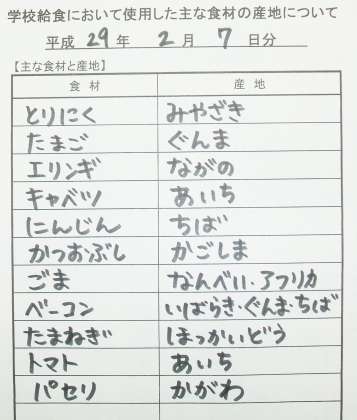 学校給食において使用した主な食材の産地について
平成 29 年 2 月 7 日分
【主な食材と産地】
食材 産地
とりにく みやざき
たまご ぐんま
エリンギ ながの
キャベツ あいち
にんじん ちば
かつおぶし かごしま
ごま なんべい・アフリカ
ベーコン いばらき・ぐんま・ちば
たまねぎ ほっかいどう
トマト あいち
パセリ かがわ